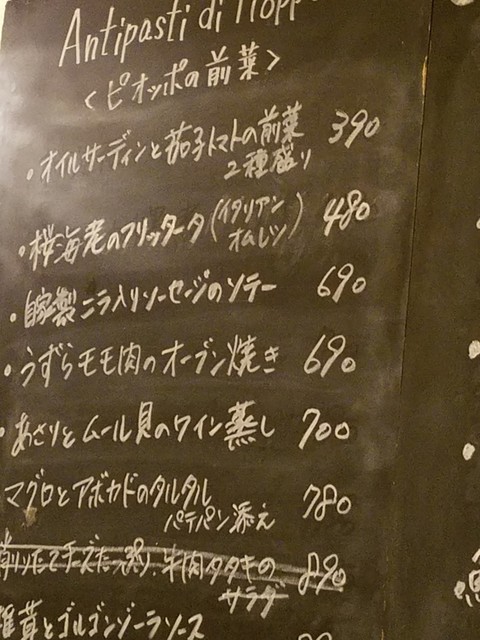 Antipasti di
<ピオッポの前菜>
・オイルサーディンと茄子トマトの前菜 390
2種盛り
・桜海老のフリッタータ(イタリアンオムレツ) 480
・自家製ニラ入りソーセージのソテー 690
・うずらモモ肉のオーブン焼き 690
・あさりとムール貝のワイン蒸し 700
マグロとアボカドのタルタル 780
パテパン添え
削りたてチーズたっぷり、牛肉タタキの 890
サラダ
椎茸とゴルゴンゾーラソース